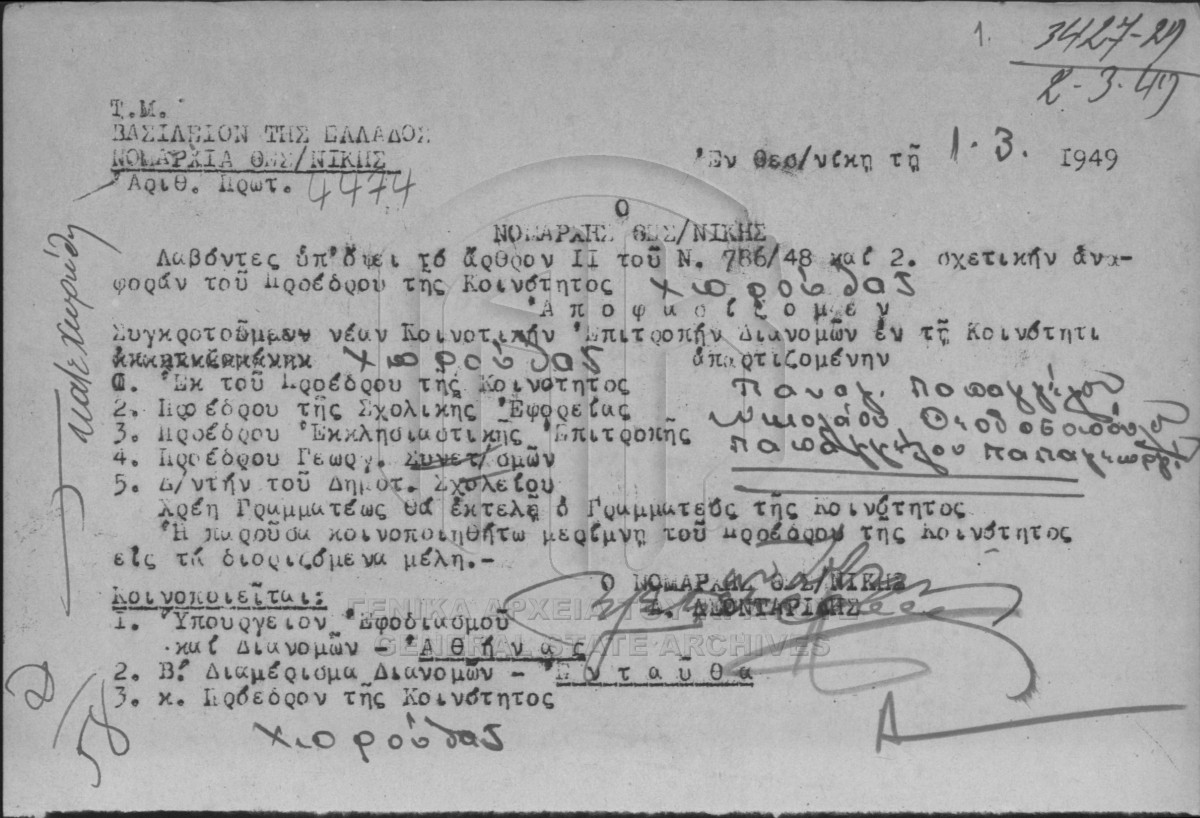 1. 3427-29
2-3-49
Τ.Μ.
ΒΑΣΙΛΕΙΟΝ ΤΗΣ ΕΛΛΑΔΟΣ
ΝΟΜΑΡΧΙΑ ΘΕΣ/ΝΙΚΗΣ
Ἀριθ. Πρωτ. 4474
Ἐν Θεσ/νίκῃ τῇ 1.3. 1949
Ο
ΝΟΜΑΡΧΗΣ ΘΕΣ/ΝΙΚΗΣ
Λαβόντες ὑπ'ὄψει τό ἄρθρον ΙΙ τοῦ Ν. 786/48 καί 2. σχετικήν ἀνα-
φοράν τοῦ Προέδρου τῆς Κοινότητος Χιαρούδας
Ἀ π ο φ α σ ί ζ ο μ ε ν
Συγκροτοῦμεν νέαν Κοινοτικήν Ἐπιτροπήν Διανομῶν ἐν τῇ Κοινότητι
Χιαρούδας ἀπαρτιζομένην
1. Ἐκ τοῦ Προέδρου τῆς Κοινότητος Παναγ. Παπαγγέλου
2. Προέδρου τῆς Σχολικῆς Ἐφορείας Νικολάου Θεοδοσοπούλου
3. Προέδρου Ἐκκλησιαστικῆς Ἐπιτροπῆς Παπαγγέλου Παπαγεωργ.
4. Προέδρου Γεωργ. Συνετ/σμῶν
5. Δ/ντήν τοῦ Δημοτ. Σχολείου
Χρέη Γραμματέως θά ἐκτελῇ ὁ Γραμματεύς τῆς Κοινότητος
Ἡ παροῦσα κοινοποιηθήτω μερίμνῃ τοῦ Προέδρου τῆς Κοινότητος
εἰς τά διοριζόμενα μέλη.-
Ο ΝΟΜΑΡΧΗΣ ΘΕΣ/ΝΙΚΗΣ
Κοινοποιεῖται:
ΓΕΝΙΚΑ ΑΡΧΕΙΑ ΤΟΥ ΚΡΑΤΟΥΣ
GENERAL STATE ARCHIVES
1. Ὑπουργεῖον Ἐφοδιασμοῦ
καί Διανομῶν - Ἀ θ ή ν α ς
2. Β΄ Διαμέρισμα Διανομῶν - Ἐ ν τ α ῦ θ α
3. κ. Πρόεδρον τῆς Κοινότητος
Χιαρούδας